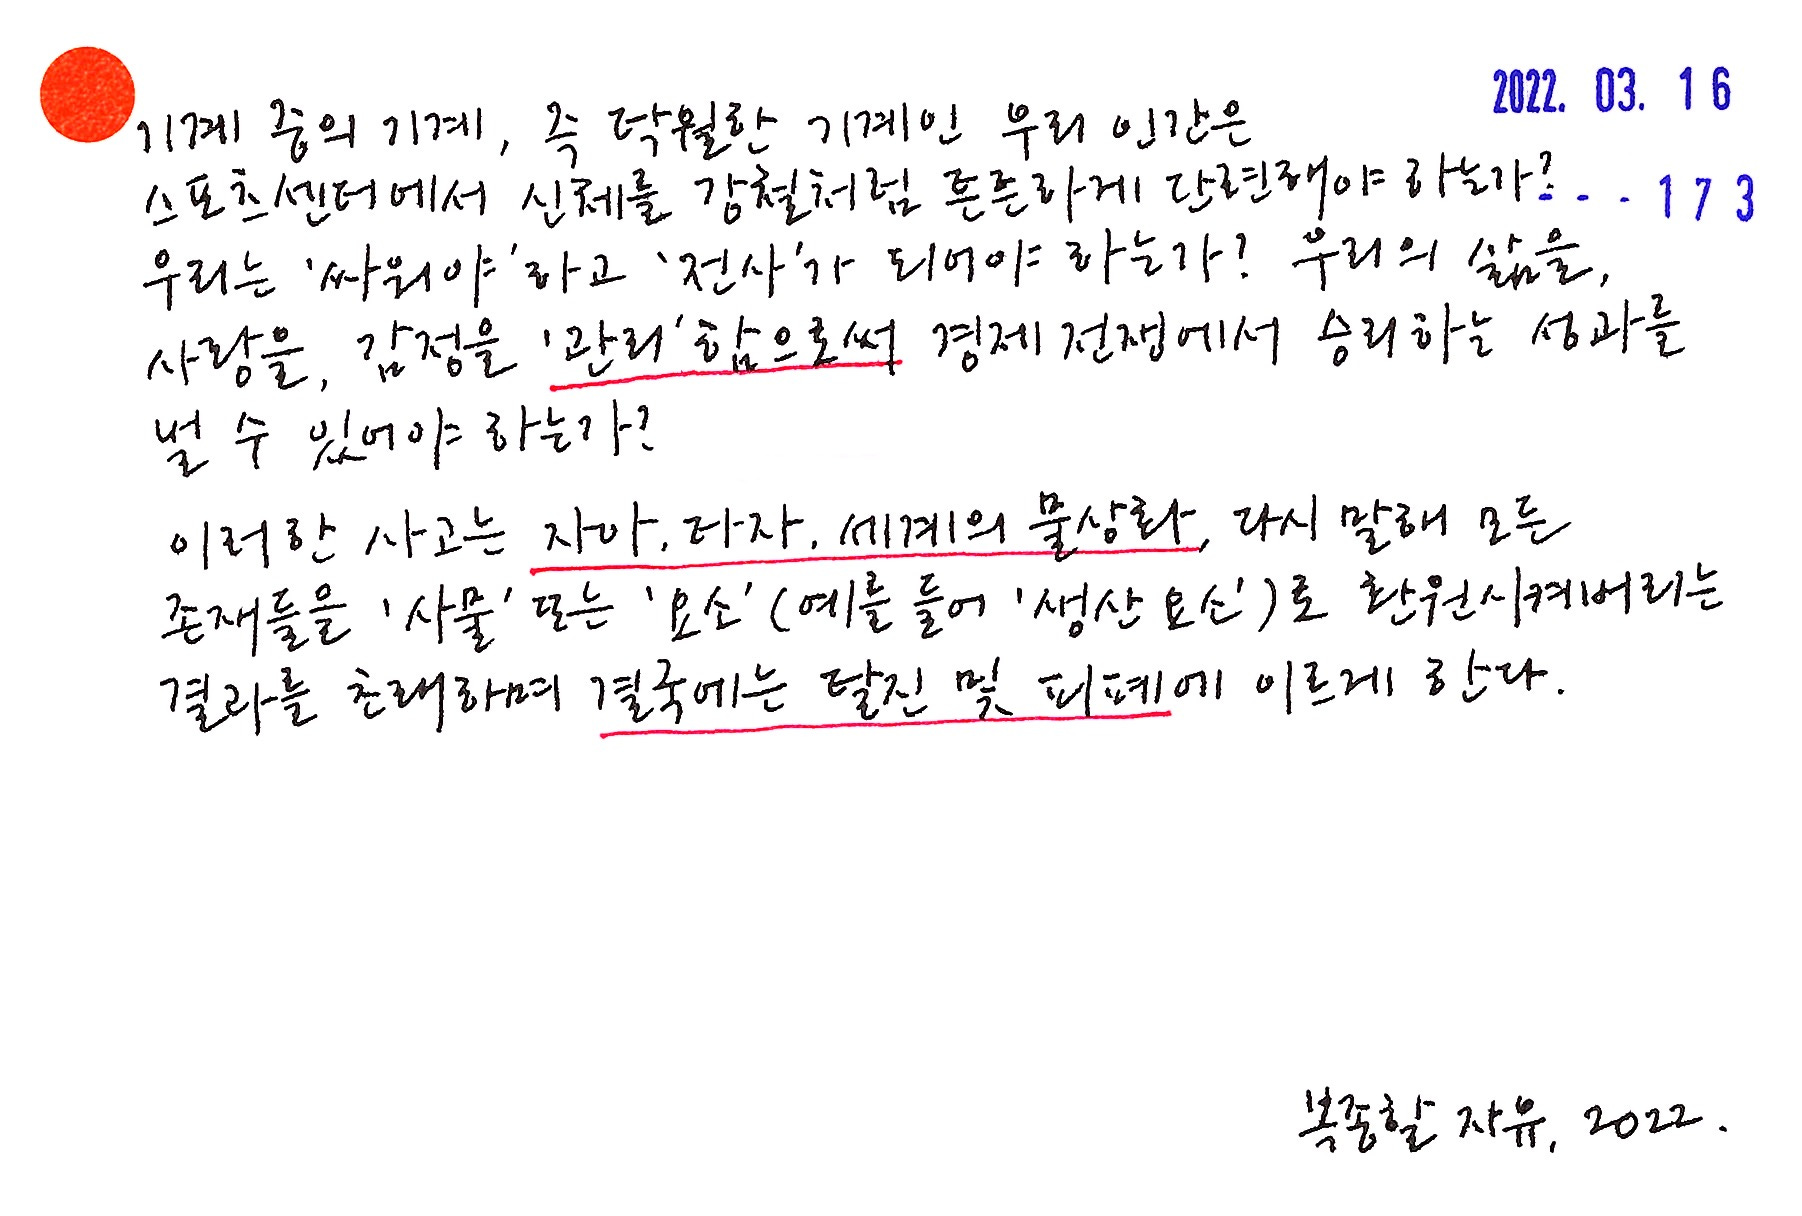 2022. 03. 16
기계 중의 기계, 즉 탁월한 기계인 우리 인간은
스포츠센터에서 신체를 강철처럼 튼튼하게 단련해야 하는가?
--- 173
우리는 '싸워야' 하고 '전사'가 되어야 하는가? 우리의 삶을,
사랑을, 감정을 '관리' 함으로써 경제 전쟁에서 승리하는 성과를
벌 수 있어야 하는가?
이러한 사고는 자아, 타자, 세계의 물상화, 다시 말해 모든
존재들을 '사물' 또는 '요소' (예를 들어 '생산 요소')로 환원시켜버리는
결과를 초래하며 결국에는 탈진 및 피폐에 이르게 한다.
복종할 자유, 2022.